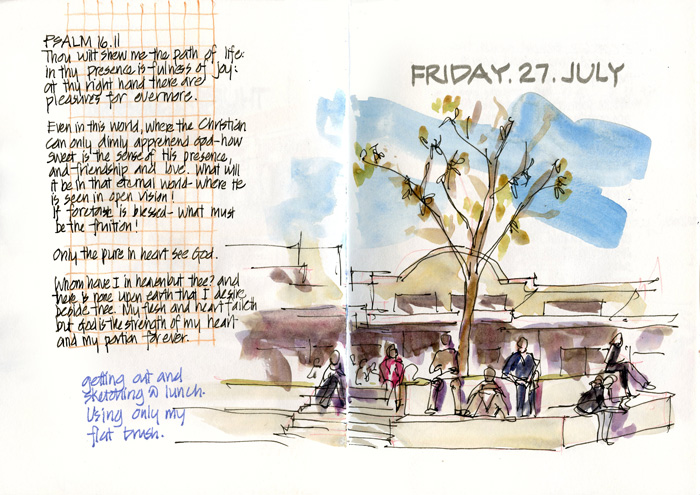 PSALM 16.11
Thou wilt shew me the path of life:
in thy presence is fulness of joy:
at thy right hand there are
pleasures for evermore.
Even in this world, where the Christian
can only dimly apprehend God-how
sweet is the sense of His presence,
and friendship and love. What will
it be in that eternal world-where He
is seen in open vision!
If foretaste is blessed-what must
be the fruition!
Only the pure in heart see God.
Whom have I in heaven but thee? and
there is none upon earth that I desire
beside thee. My flesh and heart faileth
but God is the strength of my heart
and my portion forever.
getting out and
sketching @ lunch.
Using only my
flat brush.
FRIDAY. 27. JULY